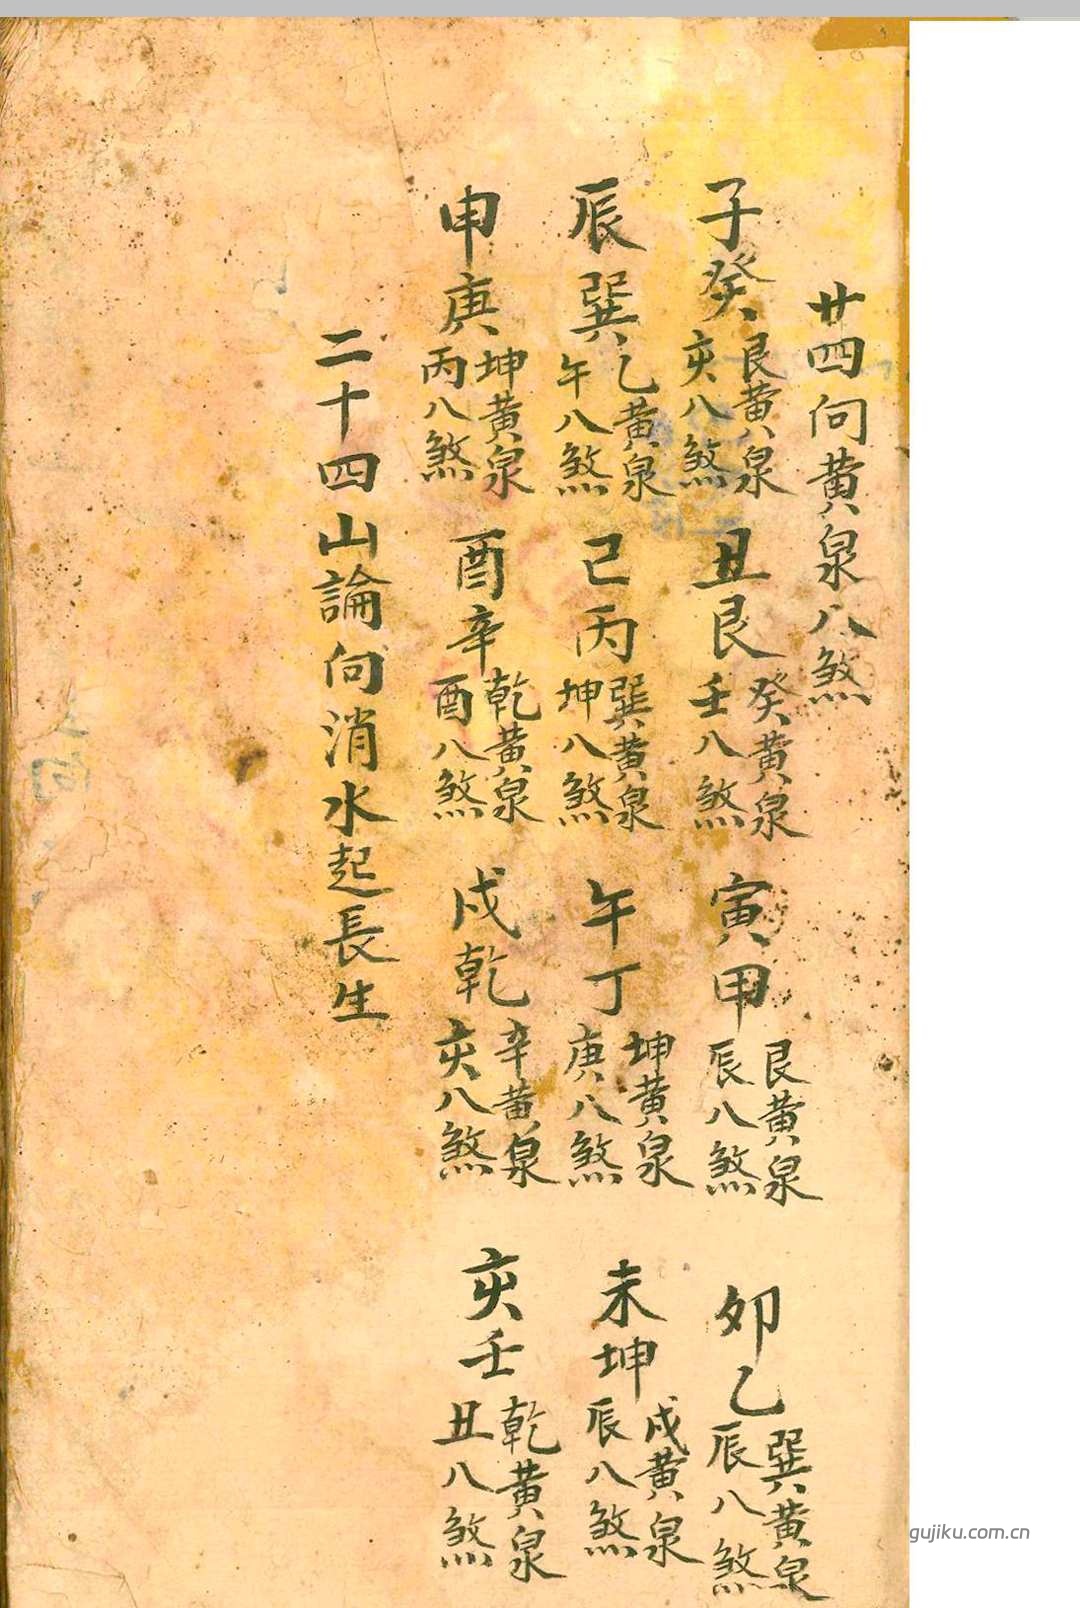 廿四向黄泉八煞
子癸 艮黄泉 亥八煞 丑艮 癸黄泉 壬八煞 寅甲 艮黄泉 辰八煞 卯乙 巽黄泉 辰八煞
辰巽 乙黄泉 午八煞 己丙 巽黄泉 坤八煞 午丁 坤黄泉 庚八煞 未坤 戍黄泉 辰八煞
申庚 坤黄泉 丙八煞 酉辛 乾黄泉 酉八煞 戍乾 辛黄泉 亥八煞 亥壬 乾黄泉 丑八煞
二十四山論向消水起長生
gujiku.com.cn